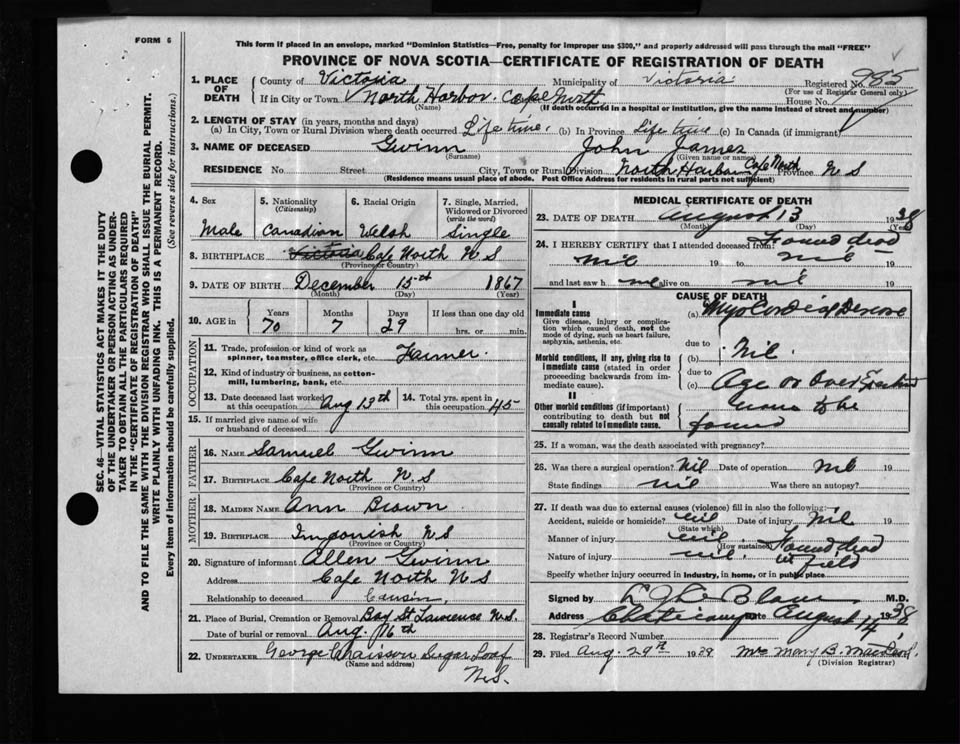 FORM 6
This form if placed in an envelope, marked "Dominion Statistics—Free, penalty for improper use $300," and properly addressed will pass through the mail "FREE"
PROVINCE OF NOVA SCOTIA—CERTIFICATE OF REGISTRATION OF DEATH
1. PLACE OF DEATH
County of Victoria Municipality of Victoria Registered No. 985
(For use of Registrar General only)
If in City or Town North Harbor. Cape North House No.
(Name) (If death occurred in a hospital or institution, give the name instead of street and number)
2. LENGTH OF STAY (in years, months and days)
(a) In City, Town or Rural Division where death occurred Life time. (b) In Province Life time (c) In Canada (if immigrant)
3. NAME OF DECEASED Gwinn John James
(Surname) (Given name or names)
RESIDENCE No. Street City, Town or Rural Division North Harbor Cape North Province N S
(Residence means usual place of abode. Post Office Address for residents in rural parts not sufficient)
4. Sex 5. Nationality (Citizenship) 6. Racial Origin 7. Single, Married, Widowed or Divorced (write the word)
Male Canadian Welsh Single
8. BIRTHPLACE Victoria Cape North N S
(Province or Country)
9. DATE OF BIRTH December 15th 1867
(Month) (Day) (Year)
10. AGE in Years Months Days If less than one day
70 7 29 hrs. or min.
OCCUPATION
11. Trade, profession or kind of work as spinner, teamster, office clerk, etc. Farmer.
12. Kind of industry or business, as cotton-mill, lumbering, bank, etc.
13. Date deceased last worked at this occupation Aug 13th 14. Total yrs. spent in this occupation 45
15. If married give name of wife or husband of deceased
FATHER
16. NAME Samuel Gwinn
17. BIRTHPLACE Cape North N.S
(Province or Country)
MOTHER
18. MAIDEN NAME Ann Brown
19. BIRTHPLACE Ingonish N S
(Province or Country)
20. Signature of informant Allen Gwinn
Address Cape North N S
Relationship to deceased Cousin
21. Place of Burial, Cremation or Removal Bay St Lawrence N.S.
Date of burial or removal Aug. 16th
22. UNDERTAKER George Chaisson Sugar Loaf
(Name and address)
N.S.
MEDICAL CERTIFICATE OF DEATH
23. DATE OF DEATH August 13 1938
(Month) (Day) (Year)
24. I HEREBY CERTIFY that I attended deceased from: Found dead
nil 19 to nil 19
and last saw h nil alive on nil 19
CAUSE OF DEATH
I
Immediate cause
Give disease, injury or complication which caused death, not the mode of dying, such as heart failure, asphyxia, asthenia, etc.
(a) Myocordial Desease
due to
Morbid conditions, if any, giving rise to immediate cause (stated in order proceeding backwards from immediate cause).
(b) Nil.
due to
(c) Age or over
II
Other morbid conditions (if important) contributing to death but not causally related to immediate cause.
none to be
found
25. If a woman, was the death associated with pregnancy?
26. Was there a surgical operation? Nil Date of operation nil 19
State findings nil Was there an autopsy?
27. If death was due to external causes (violence) fill in also the following:
Accident, suicide or homicide? nil Date of injury nil 19
(State which)
Manner of injury nil (How sustained) Found dead
Nature of injury nil. in field
Specify whether injury occurred in industry, in home, or in public place
Signed by L J Le Blanc M.D.
Address Cheticamp Date August 14, 1938
28. Registrar's Record Number
29. Filed Aug. 29th 1938 Mrs Mary B.
(Division Registrar)
SEC. 46—VITAL STATISTICS ACT MAKES IT THE DUTY
OF THE UNDERTAKER OR PERSON ACTING AS UNDERTAKER TO OBTAIN ALL THE PARTICULARS REQUIRED
IN THE "CERTIFICATE OF REGISTRATION OF DEATH"
AND TO FILE THE SAME WITH THE DIVISION REGISTRAR WHO SHALL ISSUE THE BURIAL PERMIT.
WRITE PLAINLY WITH UNFADING INK. THIS IS A PERMANENT RECORD.
Every item of information should be carefully supplied. (See reverse side for instructions.)